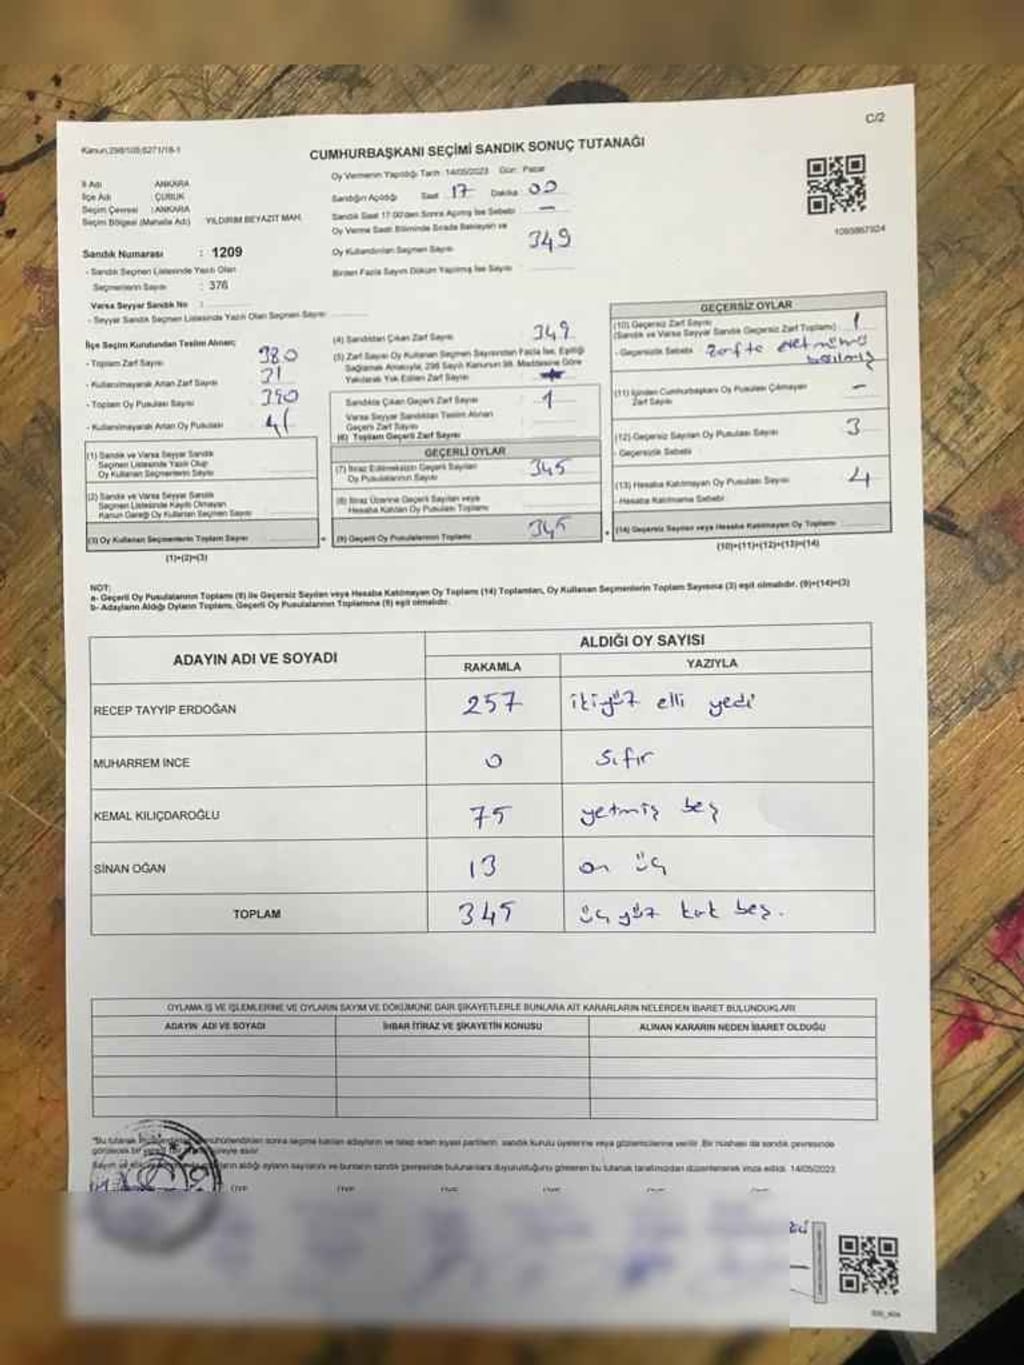 C/2
Kanun:298/105;6271/18-1
CUMHURBAŞKANI SEÇİMİ SANDIK SONUÇ TUTANAĞI
Oy Vermenin Yapıldığı Tarih :14/05/2023 Gün: Pazar
İl Adı ANKARA
İlçe Adı ÇUBUK
Seçim Çevresi : ANKARA
Seçim Bölgesi (Mahalle Adı) YILDIRIM BEYAZIT MAH.
Sandığın Açıldığı Saat 17 Dakika 00
Sandık Saat 17.00'den Sonra Açılmış İse Sebebi —
Oy Verme Saati Bitiminde Sırada Bekleyen ve
Oy Kullandırılan Seçmen Sayısı 349
Birden Fazla Sayım Döküm Yapılmış İse Sayısı
1093867924
Sandık Numarası : 1209
- Sandık Seçmen Listesinde Yazılı Olan
Seçmenlerin Sayısı : 376
Varsa Seyyar Sandık No :
- Seyyar Sandık Seçmen Listesinde Yazılı Olan Seçmen Sayısı
İlçe Seçim Kurulundan Teslim Alınan;
- Toplam Zarf Sayısı 380
- Kullanılmayarak Artan Zarf Sayısı 31
- Toplam Oy Pusulası Sayısı 390
- Kullanılmayarak Artan Oy Pusulası 41
(1) Sandık ve Varsa Seyyar Sandık
Seçmen Listesinde Yazılı Olup
Oy Kullanan Seçmenlerin Sayısı
(2) Sandık ve Varsa Seyyar Sandık
Seçmen Listesinde Kaydı Olmayan
Kanun Gereği Oy Kullanan Seçmen Sayısı
(3) Oy Kullanan Seçmenlerin Toplam Sayısı
(1)+(2)=(3)
(4) Sandıktan Çıkan Zarf Sayısı 349
(5) Zarf Sayısı Oy Kullanan Seçmen Sayısından Fazla İse, Eşitliği
Sağlamak Amacıyla, 298 Sayılı Kanunun 98. Maddesine Göre
Yakılarak Yok Edilen Zarf Sayısı
Sandıkta Çıkan Geçerli Zarf Sayısı 1
Varsa Seyyar Sandıktan Teslim Alınan
Geçerli Zarf Sayısı
(6) Toplam Geçerli Zarf Sayısı
GEÇERLİ OYLAR
(7) İtiraz Edilmeksizin Geçerli Sayılan
Oy Pusulasının Sayısı 345
(8) İtiraz Üzerine Geçerli Sayılan veya
Hesaba Katılan Oy Pusulası Toplamı
(9) Geçerli Oy Pusulalarının Toplamı 345
GEÇERSİZ OYLAR
(10) Geçersiz Zarf Sayısı 1
(Sandık ve Varsa Seyyar Sandık Geçersiz Zarf Toplamı)
- Geçersizlik Sebebi zarfta evet mührü
basılmış
(11) İçinden Cumhurbaşkanı Oy Pusulası Çıkmayan
Zarf Sayısı —
(12) Geçersiz Sayılan Oy Pusulası Sayısı 3
- Geçersizlik Sebebi
(13) Hesaba Katılmayan Oy Pusulası Sayısı 4
- Hesaba Katılmama Sebebi
(14) Geçersiz Sayılan veya Hesaba Katılmayan Oy Toplamı
(10)+(11)+(12)+(13)=(14)
NOT:
a- Geçerli Oy Pusulalarının Toplamı (9) ile Geçersiz Sayılan veya Hesaba Katılmayan Oy Toplamı (14) Toplamları, Oy Kullanan Seçmenlerin Toplam Sayısına (3) eşit olmalıdır. (9)+(14)=(3)
b- Adayların Aldığı Oyların Toplamı, Geçerli Oy Pusulalarının Toplamına (9) eşit olmalıdır.
ADAYIN ADI VE SOYADI
ALDIĞI OY SAYISI
RAKAMLA YAZIYLA
RECEP TAYYİP ERDOĞAN 257 ikiyüz elli yedi
MUHARREM İNCE 0 sıfır
KEMAL KILIÇDAROĞLU 75 yetmiş beş
SİNAN OĞAN 13 on üç
TOPLAM 345 üç yüz kırk beş.
OYLAMA İŞ VE İŞLEMLERİNE VE OYLARIN SAYIM VE DÖKÜMÜNE DAİR ŞİKAYETLERLE BUNLARA AİT KARARLARIN NELERDEN İBARET BULUNDUKLARI
ADAYIN ADI VE SOYADI İHBAR İTİRAZ VE ŞİKAYETİN KONUSU ALINAN KARARIN NEDEN İBARET OLDUĞU